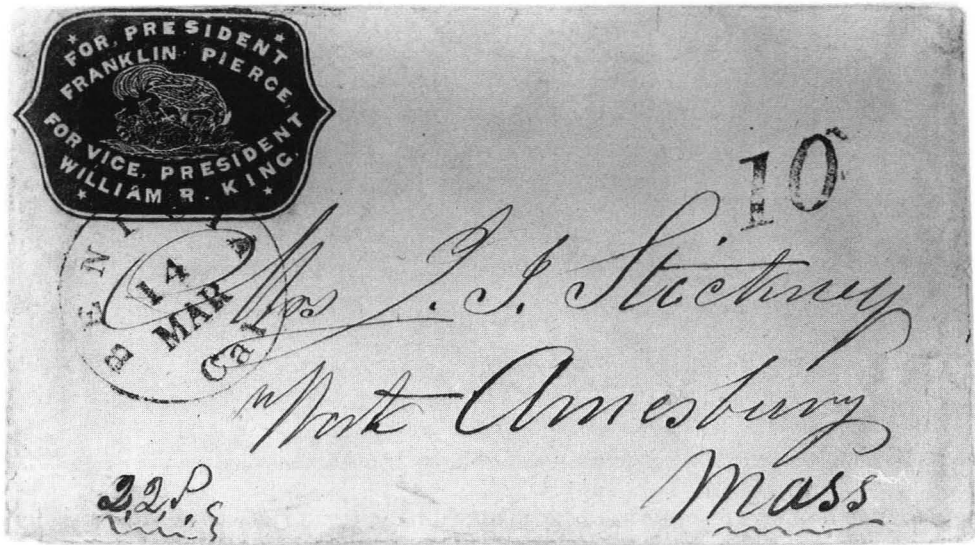 FOR, PRESIDENT
FRANKLIN PIERCE,
FOR VICE, PRESIDENT
WILLIAM R. KING.
10
BENICIA
14
MAR
Cal
Mrs J. J. Stickney
"North Amesbury
Mass